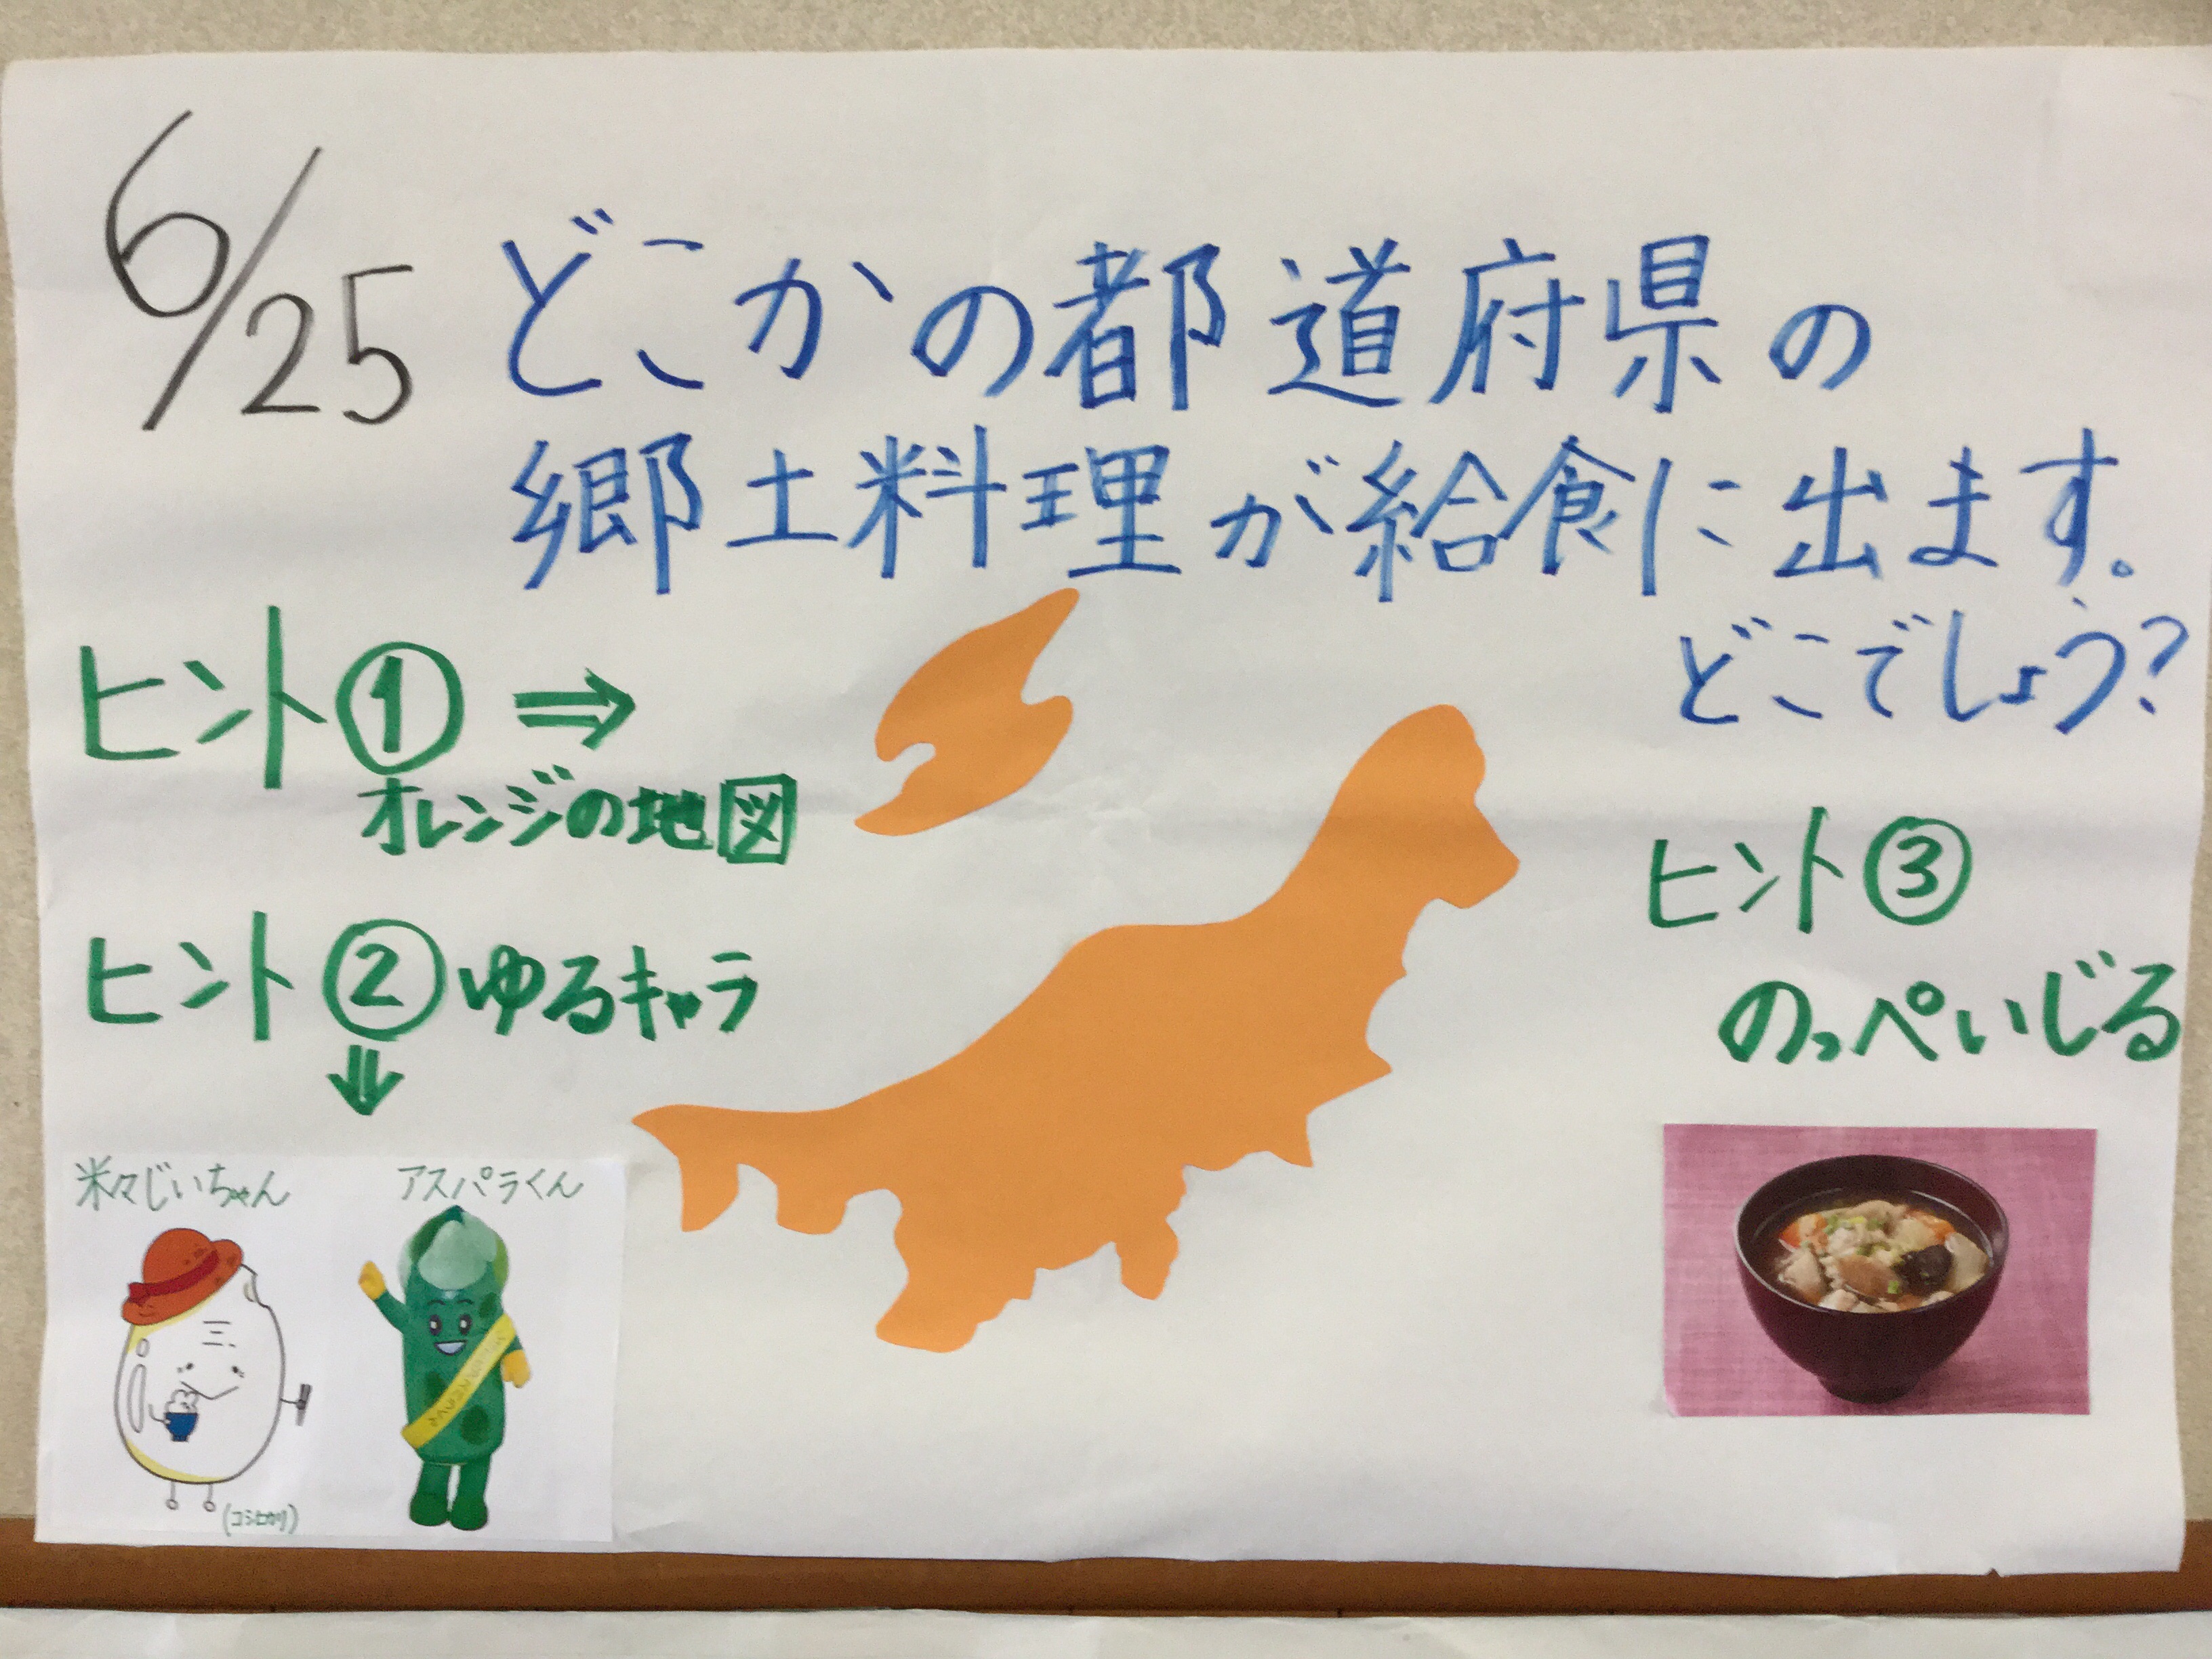 6/25
どこかの都道府県の
郷土料理が給食に出ます。
どこでしょう?
ヒント① ⇒
オレンジの地図
ヒント② ゆるキャラ
⇓
米々じいちゃん
アスパラくん
(コシヒカリ)
ヒント③
のっぺいじる